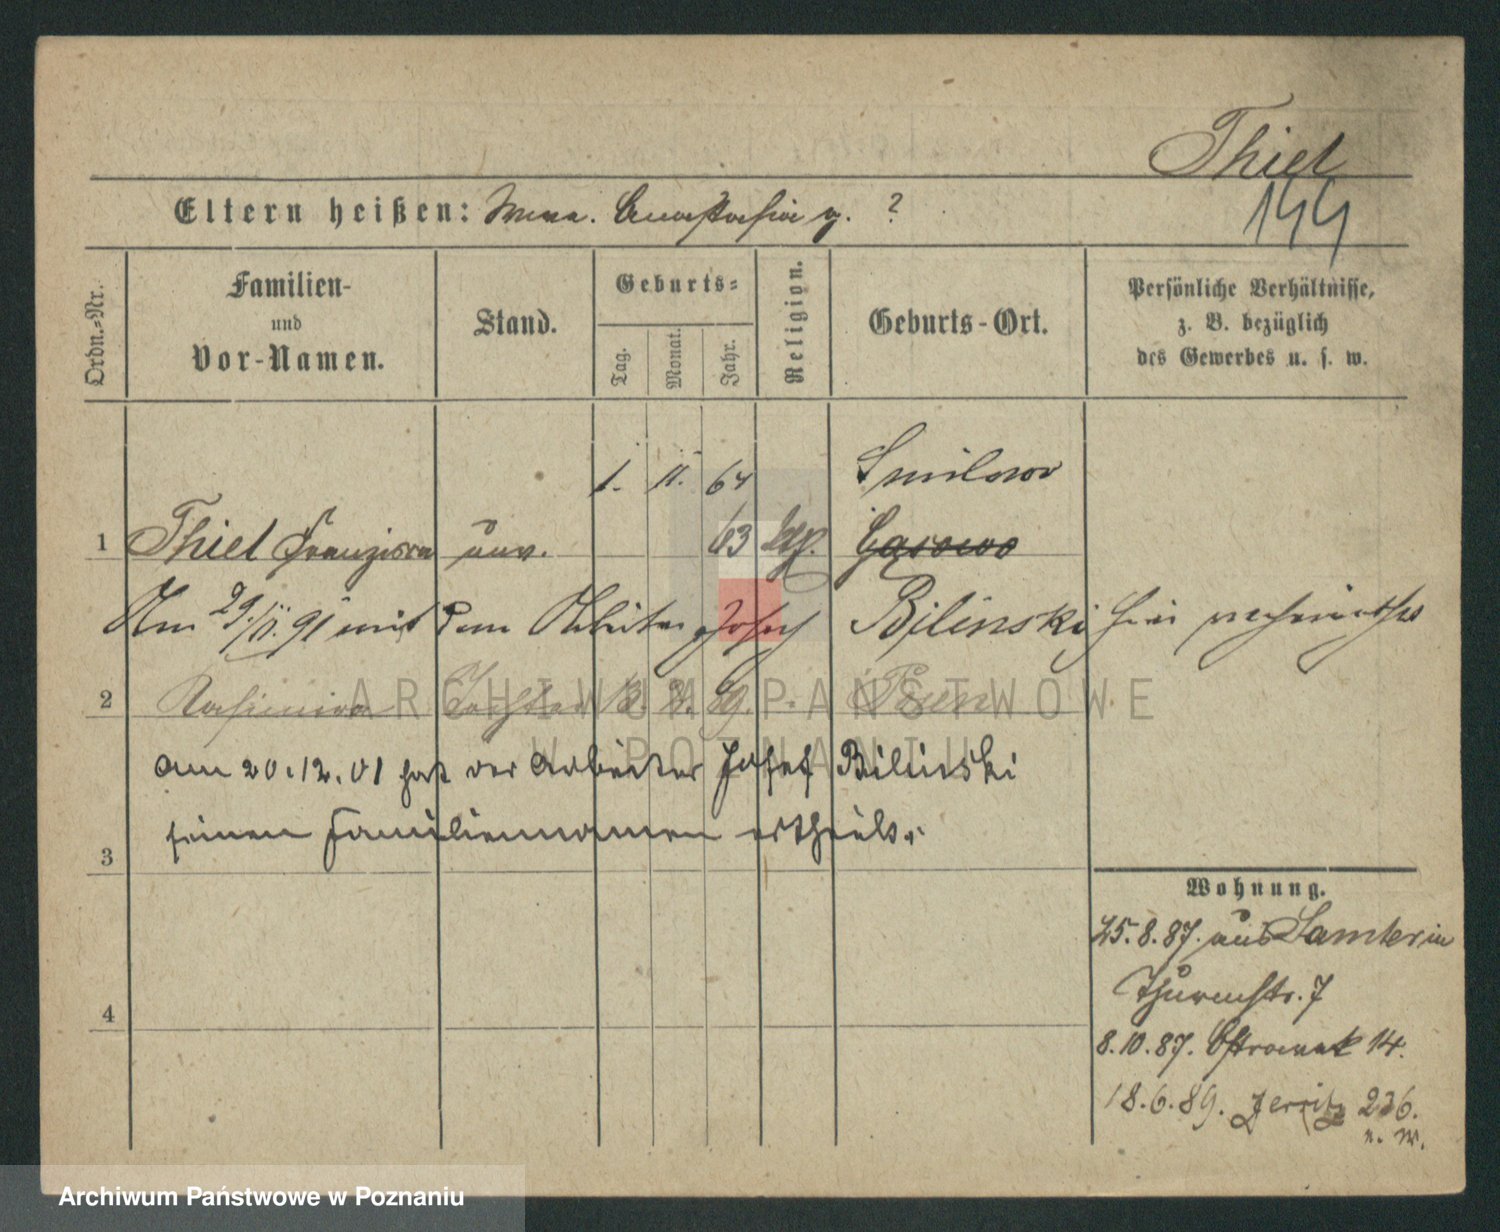 Thiel
144
Eltern heißen: Anastasia g. ?
Ordn.-Nr.
Familien-
und
Vor-Namen.
Stand.
Geburts-
Tag.
Monat.
Jahr.
Religion.
Geburts-Ort.
Persönliche Verhältnisse,
z. B. bezüglich
des Gewerbes u. s. w.
1. 11. 64 Smilowo
1 Thiel Franziska unv. 63 kth. Gąsawo
Am 29./11. 91 mit dem Arbeiter Joseph Bilinski hier verheirathet
2 Kasimira Tochter 3. 89. Posen
Am 20.12.01 hat der Arbeiter Josef Bilinski
seinen Familiennamen ertheilt.
3
Wohnung.
25.8.87. aus Samter in
Thurmstr. 7
4
8.10.87. Ostrowek 14.
18.6.89. Jersitz 236.
n. W.
ARCHIWUM PAŃSTWOWE
W POZNANIU
Archiwum Państwowe w Poznaniu